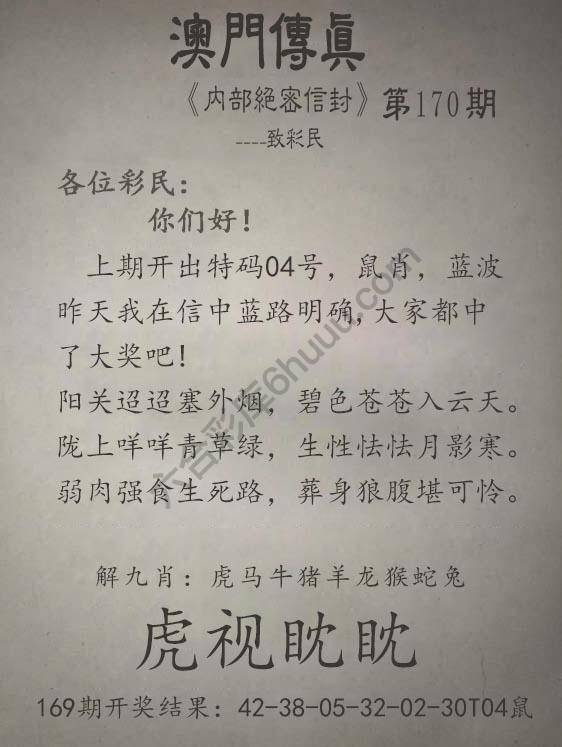 澳門傳真
《内部絕密信封》第170期
----致彩民
各位彩民：
你们好！
上期开出特码04号，鼠肖，蓝波
昨天我在信中蓝路明确，大家都中
了大奖吧！
阳关迢迢塞外烟，碧色苍苍入云天。
陇上咩咩青草绿，生性怯怯月影寒。
弱肉强食生死路，葬身狼腹堪可怜。
解九肖：虎马牛猪羊龙猴蛇兔
虎视眈眈
169期开奖结果：42-38-05-32-02-30T04鼠
六合彩库6huuu.com